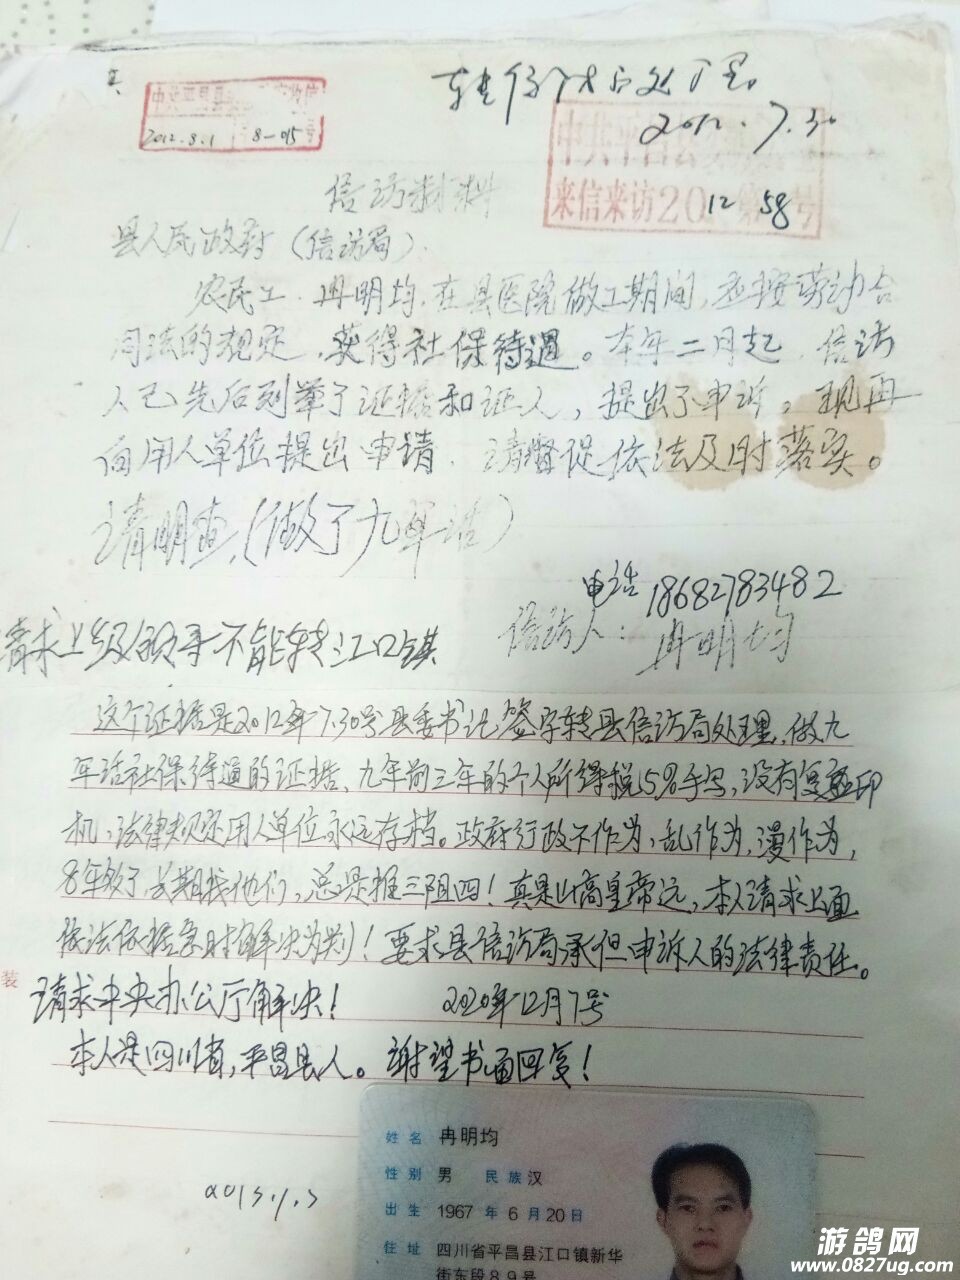 转信访局处理。
2012.7.30
中共平昌县
2012.8.1 8-015号
来信来访2012第58号
信访材料
县人民政府（信访局）.
农民工.冉明均.在县医院做工期间，应按劳动合
同法的规定.获得社保待遇。本年二月起.信访
人已先后列举了证据和证人，提出了申诉。现再
向用人单位提出申请.请督促依法及时落实。
请明查.(做了九年活)
电话18682783482
信访人：冉明均
请求上级领导不能转江口镇
这个证据是2012年7.30号县委书记签字转县信访局处理，做九
年活社保待遇的证据，九年前三年的个人所得税5%手写，没有复印
机，法律规定用人单位永远存档。政府行政不作为，乱作为，漫作为，
8年多了长期找他们，总是推三阻四！真是山高皇帝远，本人请求上面
依法依据急时解决为判！要求县信访局承但申诉人的法律责任。
装
请求中央办公厅解决！ 2020年12月7号
本人是四川省，平昌县人。谢望书面回复！
2013.1.3
姓名 冉明均
性别 男 民族 汉
出生 1967 年 6 月 20 日
住址 四川省平昌县江口镇新华
街东段89号
游鸽网
www.0827ug.com